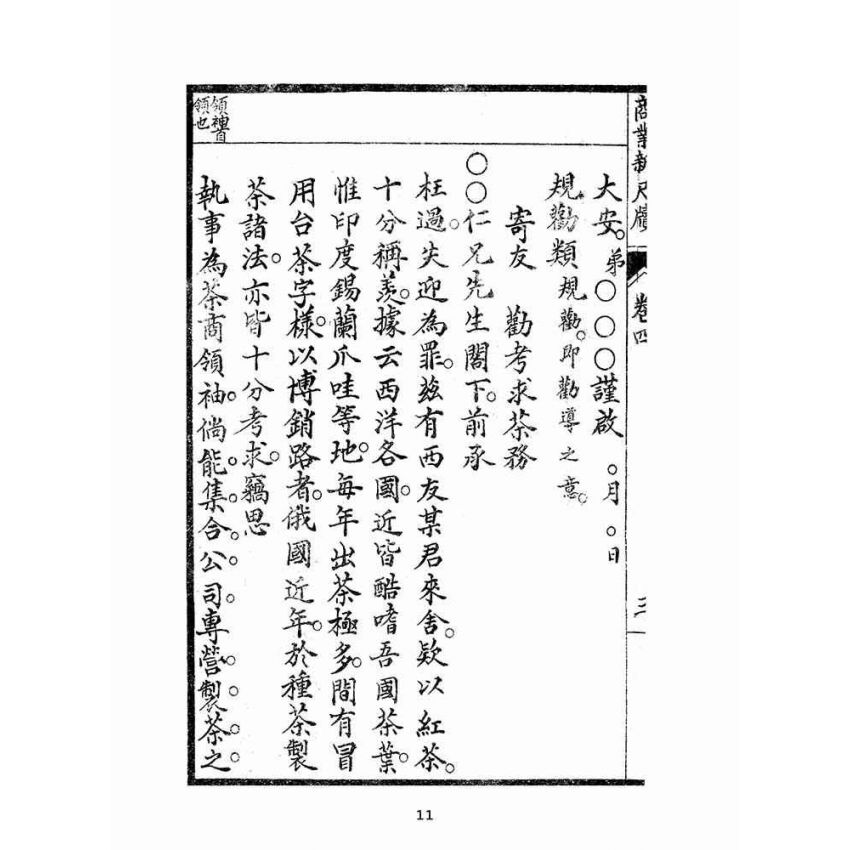 商業新尺牘 卷四 三
大安。弟〇〇〇謹啟 〇月〇日
規勸類 規勸。即勸導之意。
寄友 勸考求茶務
〇〇仁兄先生閣下。前承
枉過。失迎為罪。茲有西友某君來舍。欵以紅茶。
十分稱羨。據云西洋各國。近皆酷嗜吾國茶葉。
惟印度錫蘭爪哇等地。每年出茶極多。間有冒
用台茶字樣。以博銷路者。俄國近年。於種茶製
茶諸法。亦皆十分考求。竊思
執事為茶商領袖。倘能集合公司。專營製茶之
領袖首
領也
11